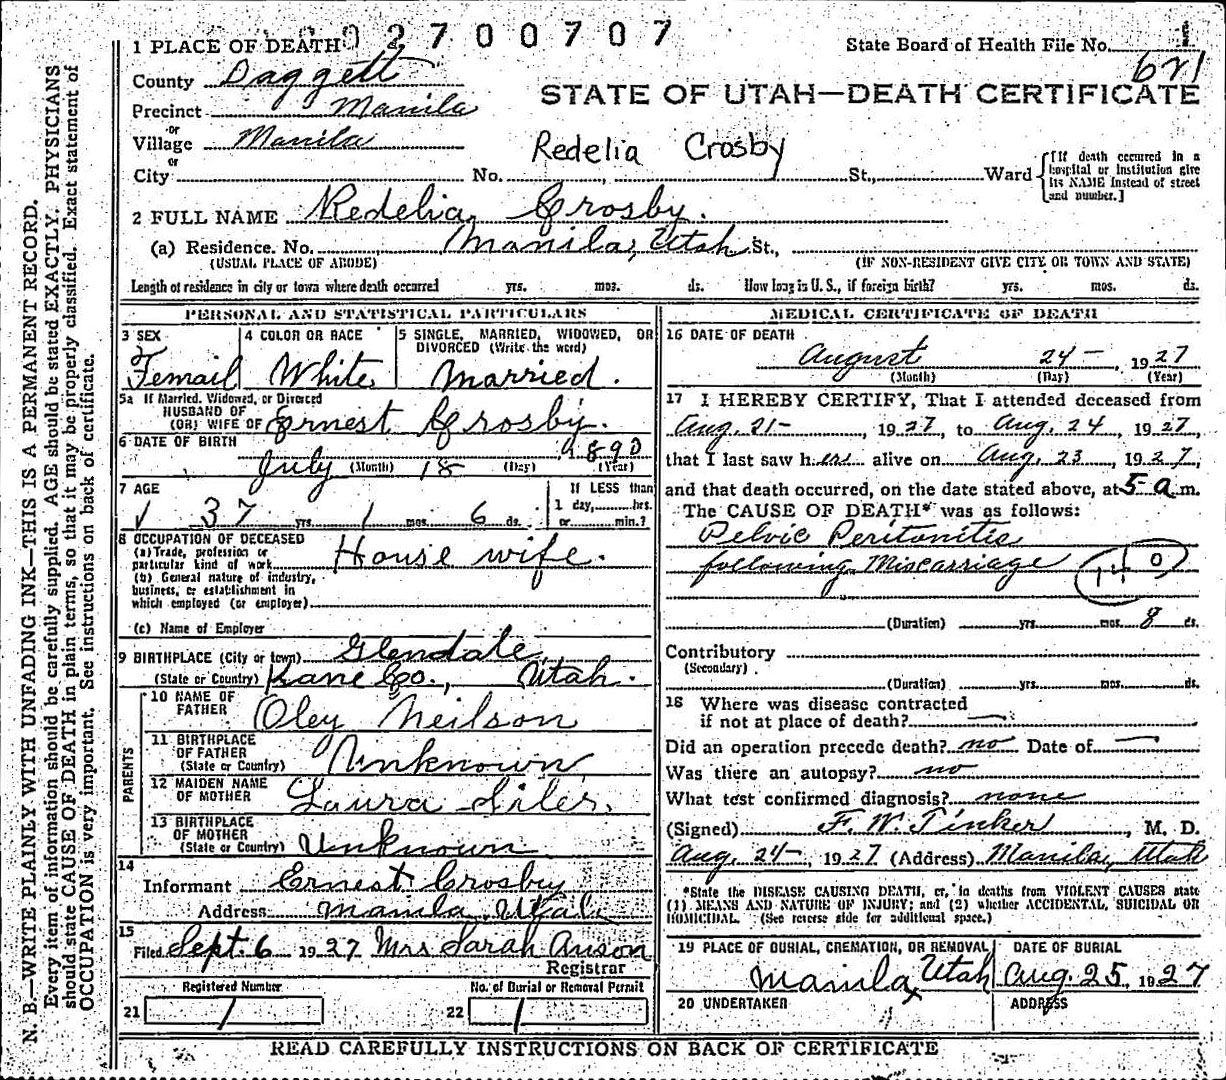 1 PLACE OF DEATH 0 2 7 0 0 7 0 7
State Board of Health File No.
621
County Daggett
STATE OF UTAH—DEATH CERTIFICATE
Precinct Manila
or
Village Manila
or
Redelia Crosby
City No. St., Ward
[If death occurred in a hospital or institution give its NAME instead of street and number.]
2 FULL NAME Redelia Crosby.
(a) Residence. No. Manila, Utah St.,
(USUAL PLACE OF ABODE) (IF NON-RESIDENT GIVE CITY OR TOWN AND STATE)
Length of residence in city or town where death occurred yrs. mos. ds. How long in U. S., if foreign birth? yrs. mos. ds.
PERSONAL AND STATISTICAL PARTICULARS
3 SEX
Femail
4 COLOR OR RACE
White
5 SINGLE, MARRIED, WIDOWED, OR
DIVORCED (Write the word)
Married.
5a If Married, Widowed, or Divorced
HUSBAND OF
(OR) WIFE OF Ernest Crosby.
6 DATE OF BIRTH
July (Month) 18 (Day) 1890 (Year)
7 AGE
37 yrs. 1 mos. 6 ds.
If LESS than
1 day, hrs.
or min.?
8 OCCUPATION OF DECEASED
(a) Trade, profession or
particular kind of work House wife.
(b) General nature of industry,
business, or establishment in
which employed (or employer)
(c) Name of Employer
9 BIRTHPLACE (City or town) Glendale,
(State or Country) Kane Co., Utah.
PARENTS
10 NAME OF
FATHER Oley Neilson
11 BIRTHPLACE
OF FATHER
(State or Country) Unknown
12 MAIDEN NAME
OF MOTHER Laura Siler.
13 BIRTHPLACE
OF MOTHER
(State or Country) Unknown
14
Informant Ernest Crosby
Address Manila, Utah
15
Filed Sept. 6 1927 Mrs Sarah Anson
Registrar
Registered Number
21 1
No. of Burial or Removal Permit
22 1
MEDICAL CERTIFICATE OF DEATH
16 DATE OF DEATH
August 24-, 1927
(Month) (Day) (Year)
17 I HEREBY CERTIFY, That I attended deceased from
Aug. 21-, 1927, to Aug. 24, 1927,
that I last saw her alive on Aug. 23, 1927,
and that death occurred, on the date stated above, at 5-a.m.
The CAUSE OF DEATH* was as follows:
Pelvic Peritonitis
following Miscarriage 140
(Duration) yrs. mos. 8 ds.
Contributory
(Secondary)
(Duration) yrs. mos. ds.
18 Where was disease contracted
if not at place of death? —
Did an operation precede death? no Date of —
Was there an autopsy? no
What test confirmed diagnosis? none
(Signed) F. W. Tinker, M. D.
Aug. 24-, 1927 (Address) Manila, Utah
*State the DISEASE CAUSING DEATH, or, in deaths from VIOLENT CAUSES state
(1) MEANS AND NATURE OF INJURY; and (2) whether ACCIDENTAL, SUICIDAL OR
HOMICIDAL. (See reverse side for additional space.)
19 PLACE OF BURIAL, CREMATION, OR REMOVAL
Manila, Utah
DATE OF BURIAL
Aug. 25, 1927
20 UNDERTAKER
ADDRESS
READ CAREFULLY INSTRUCTIONS ON BACK OF CERTIFICATE
N. B.—WRITE PLAINLY WITH UNFADING INK—THIS IS A PERMANENT RECORD.
Every item of information should be carefully supplied. AGE should be stated EXACTLY. PHYSICIANS
should state CAUSE OF DEATH in plain terms, so that it may be properly classified. Exact statement of
OCCUPATION is very important. See instructions on back of certificate.